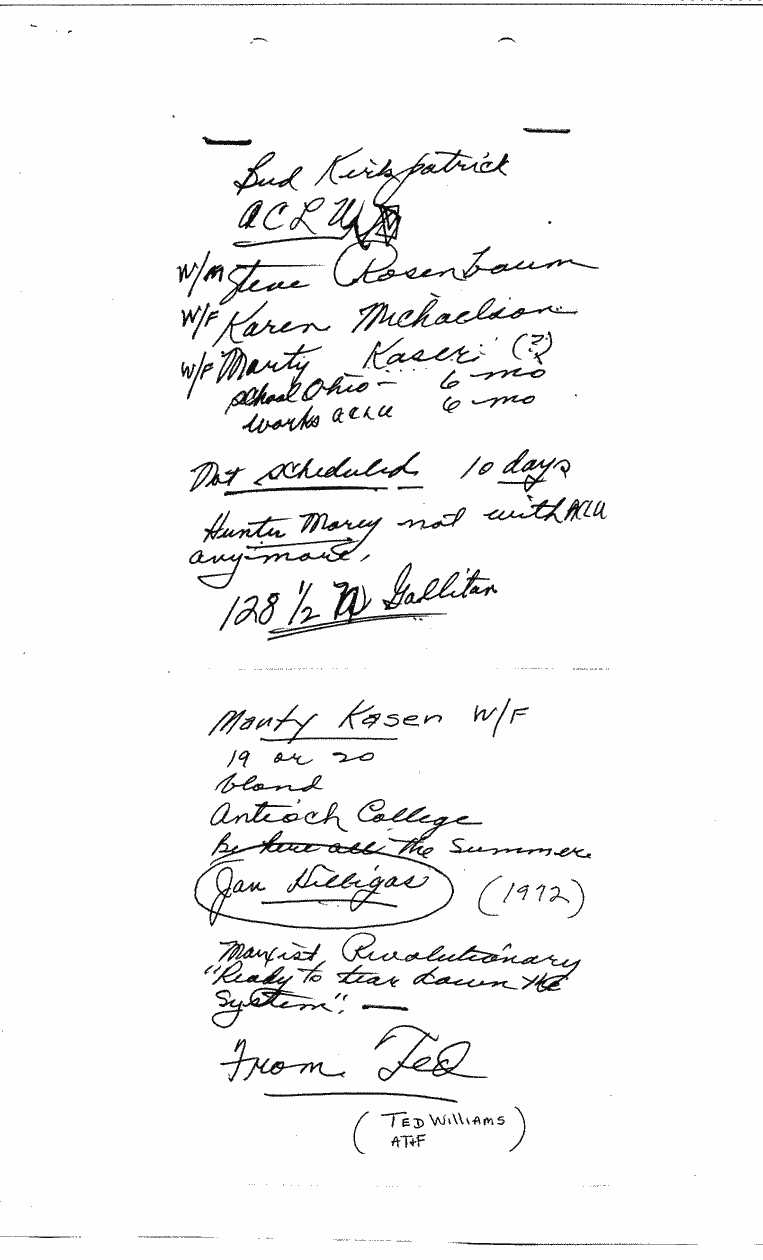 Bud Kirkpatrick
ACLU
W/M Steve Rosenbaum
W/F Karen Michaelson
W/F Marty Kaser (?)
school Ohio - 6 mo
works ACLU 6 mo
Not scheduled 10 days
Hunter Morey not with ACLU
anymore,
128 1/2 N Gallitan
Marty Kasen W/F
19 or 20
blond
Antioch College
Be here all the Summer
Jan Hilligas (1972)
Marxist, Revolutionary
"Ready to tear down the
System". —
From Ted
(TED WilliAMS
AT+F)